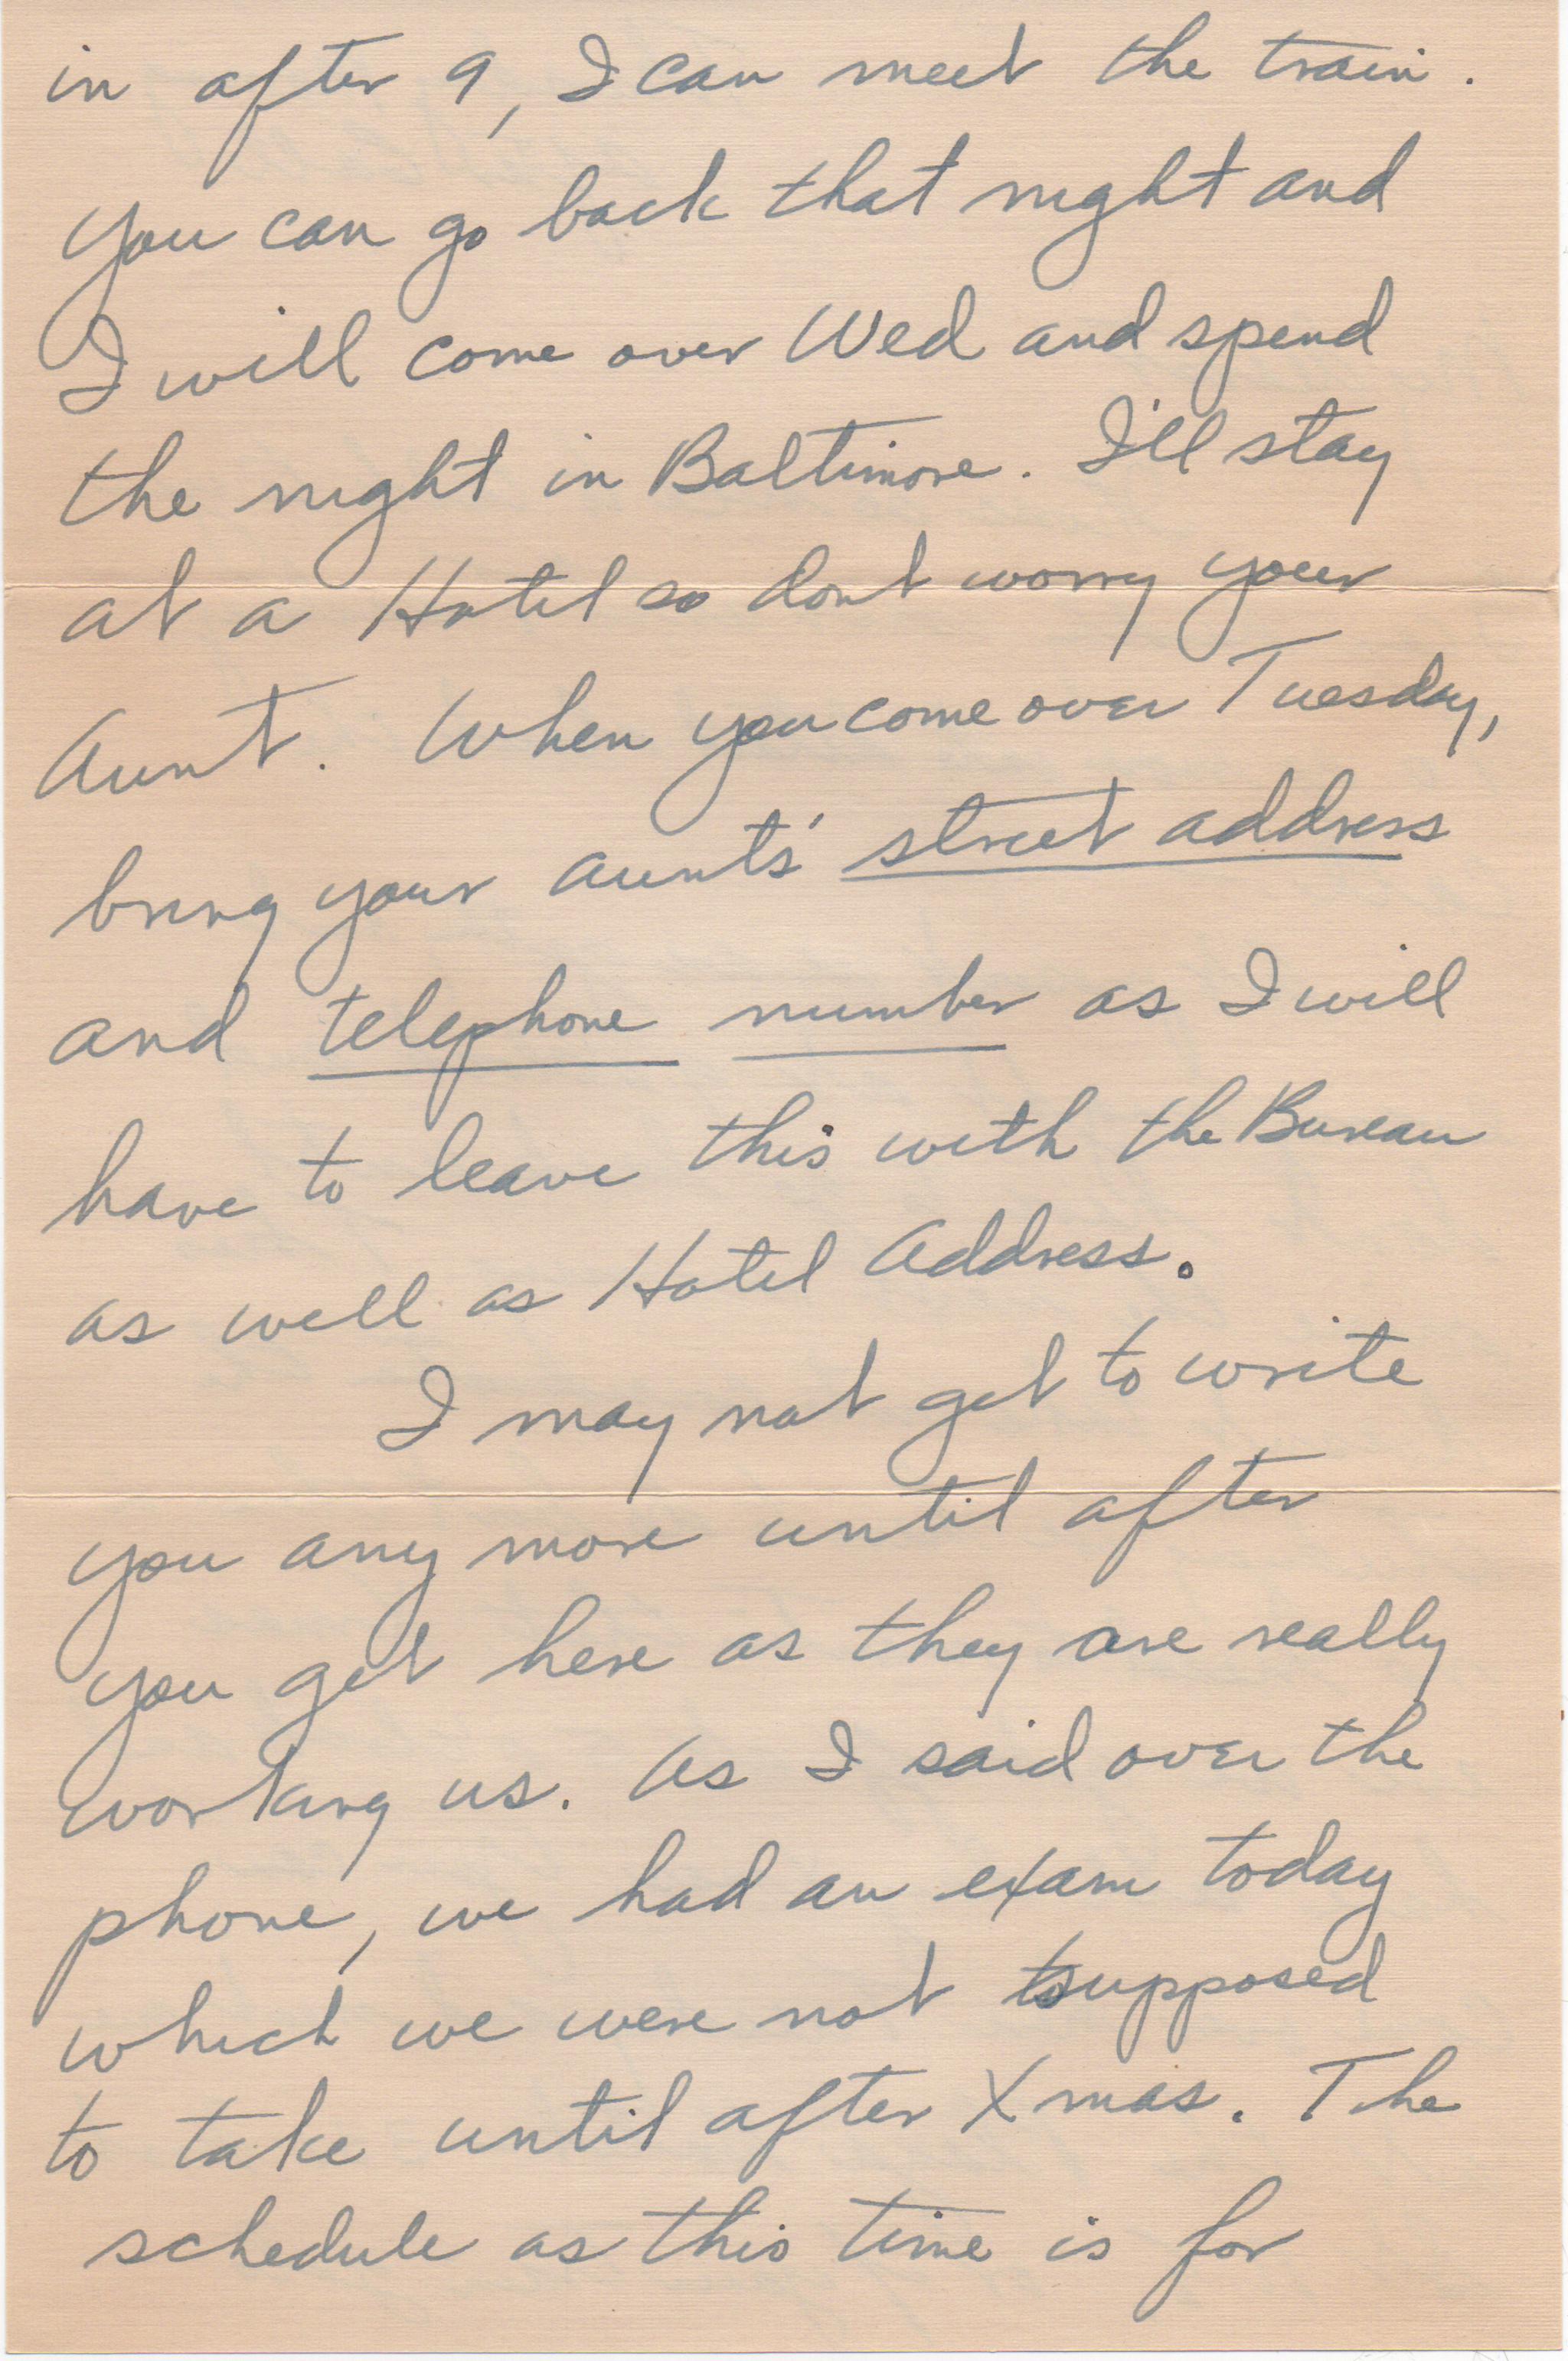 in after 9, I can meet the train.
You can go back that night and
I will come over Wed and spend
the night in Baltimore. I'll stay
at a Hotel so dont worry your
Aunt. When you come over Tuesday,
bring your aunts' street address
and telephone number as I will
have to leave this with the Bureau
as well as Hotel Address.
I may not get to write
you any more until after
you get here as they are really
working us. As I said over the
phone, we had an exam today
which we were not supposed
to take until after Xmas. The
schedule as this time is for